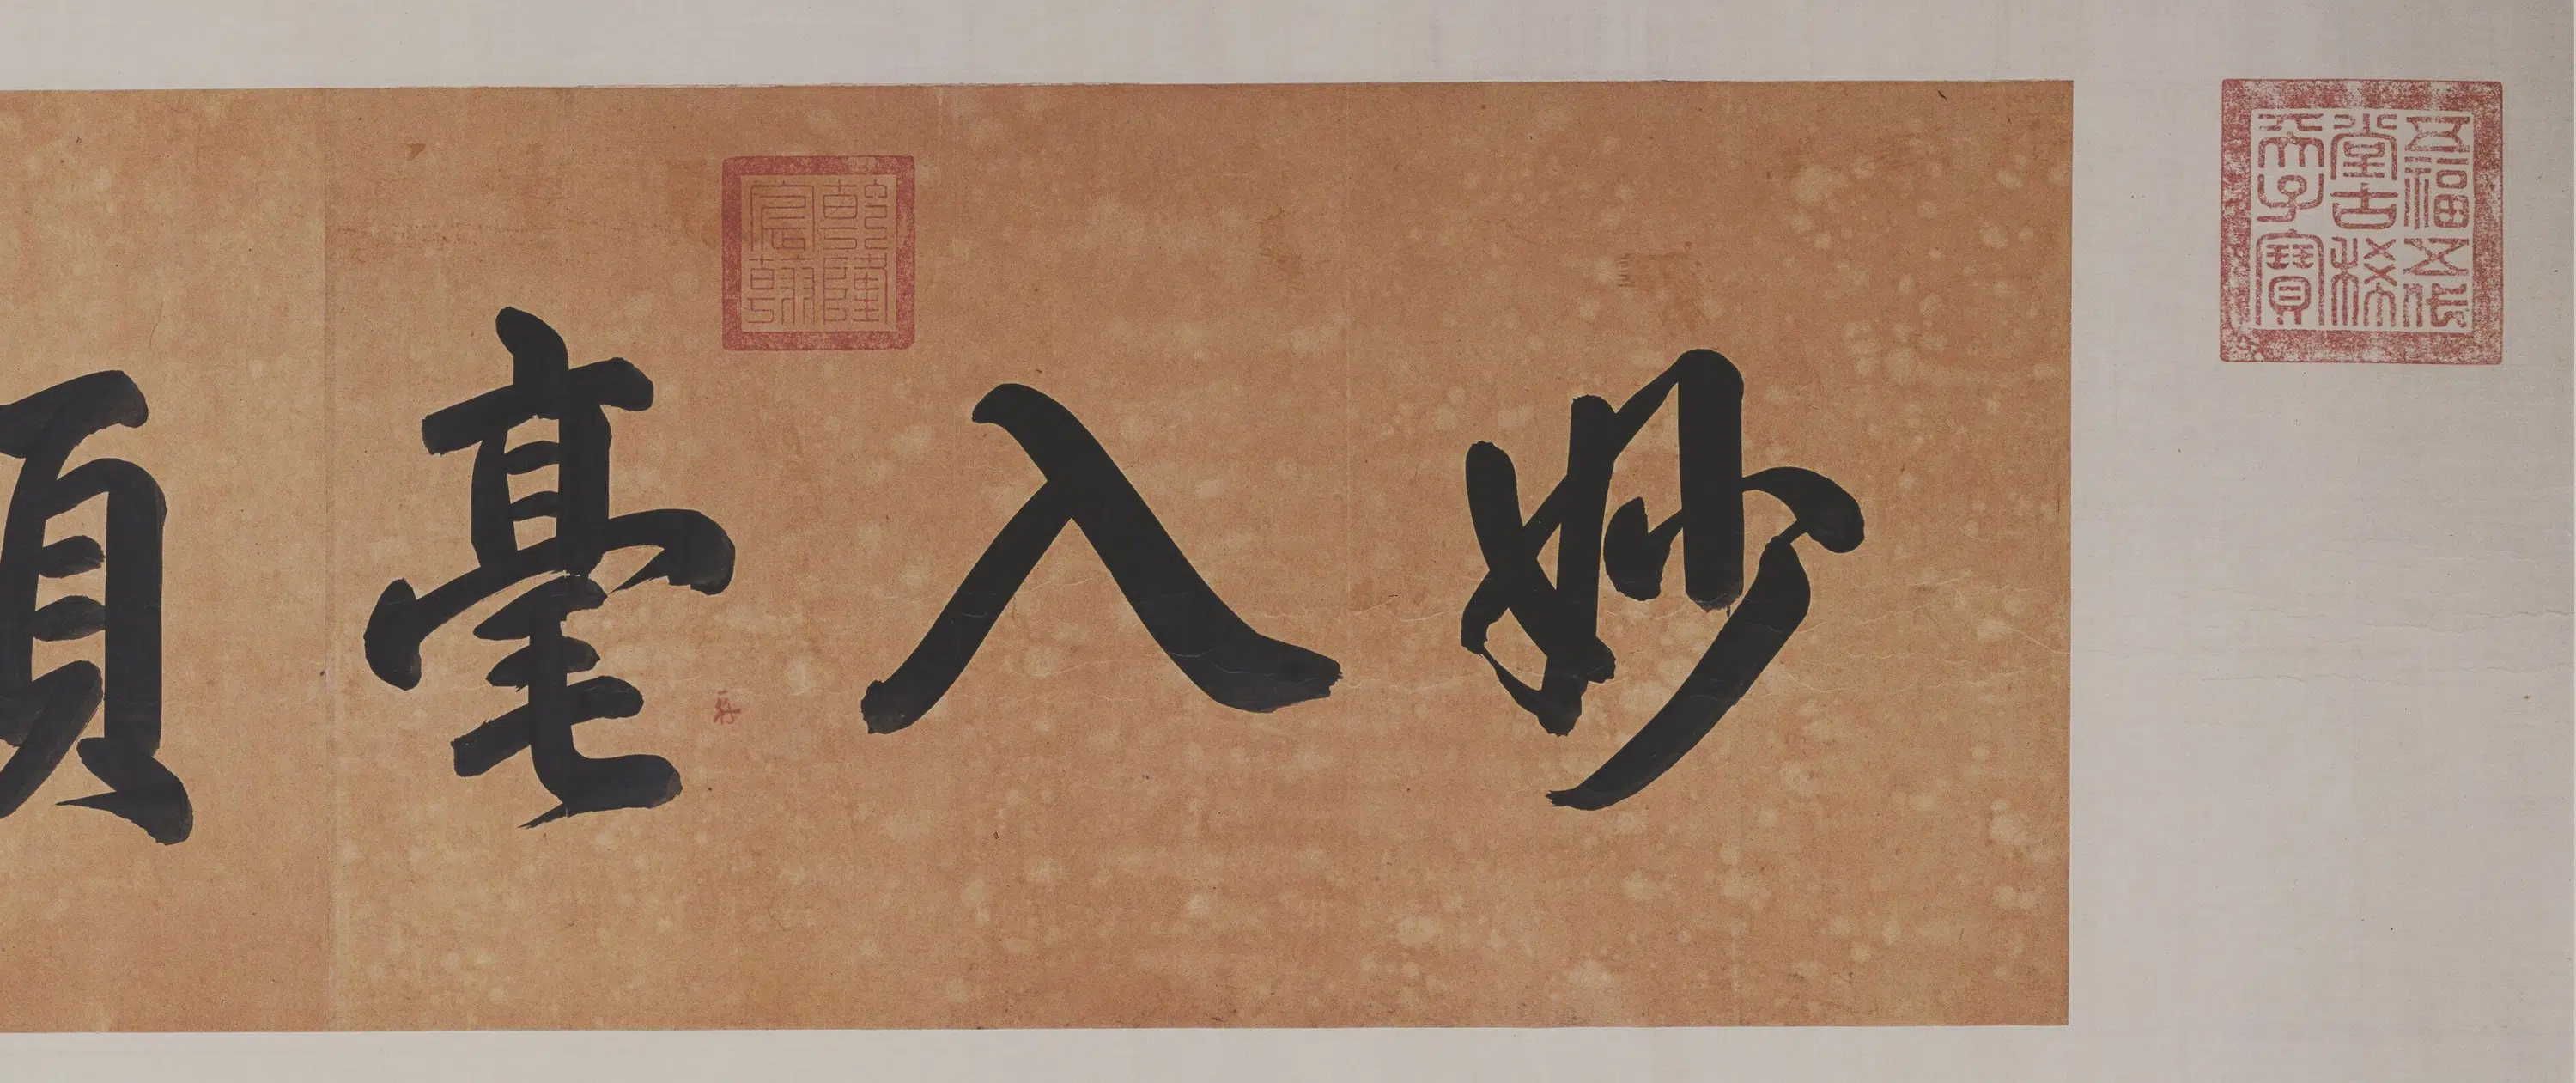 五福五代
堂古稀
天子寶
妙入毫
乾隆
宸翰